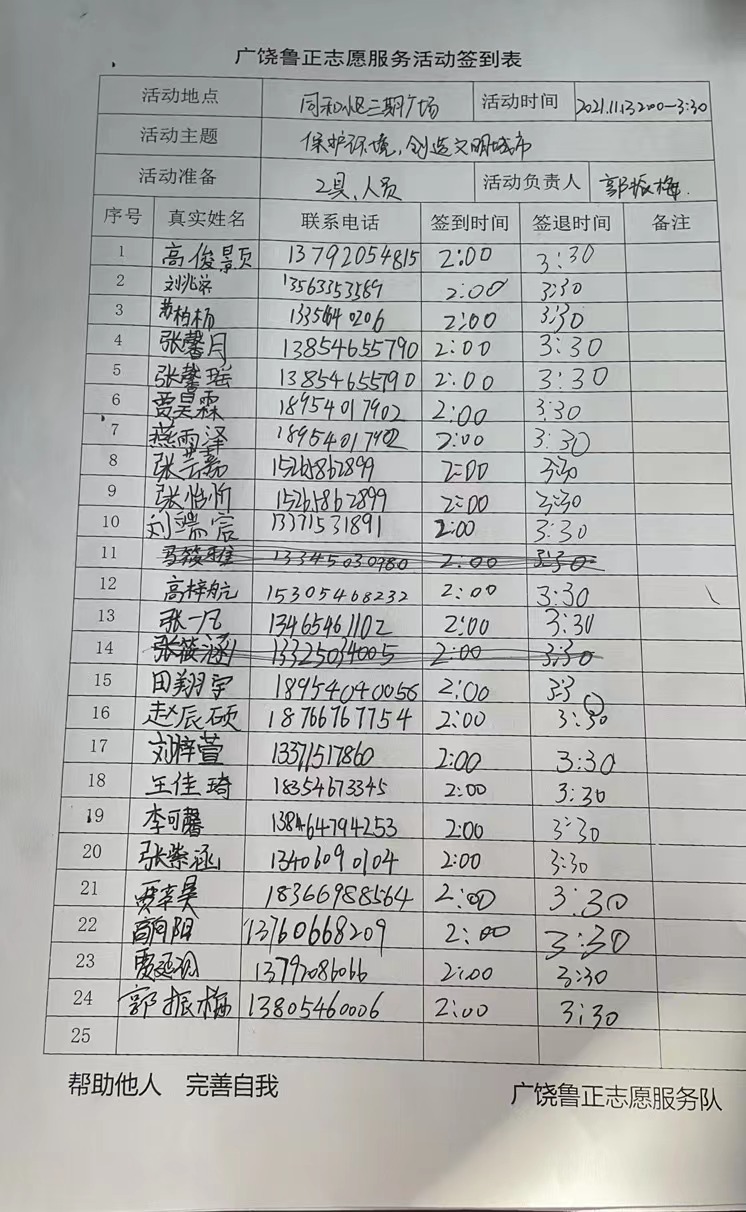 广饶鲁正志愿服务活动签到表
活动地点 同和小区三期广场 活动时间 2021.11.13 2:00—3:30
活动主题 保护环境,创造文明城市
活动准备 工具、人员 活动负责人 郭振梅
序号 真实姓名 联系电话 签到时间 签退时间 备注
1 高俊景页 13792054815 2:00 3:30
2 13563353589 2:00 3:30
3 苏柏杨 133564 0206 2:00 3:30
4 张馨月 13854655790 2:00 3:30
5 张馨瑶 13854655790 2:00 3:30
6 贾昊霖 18954017902 2:00 3:30
7 燕雨泽 18954017902 2:00 3:30
8 张芸嘉 15265862899 2:00 3:30
9 张怡忻 15265862899 2:00 3:30
10 刘端宸 13371531891 2:00 3:30
11 13345030980 2:00 3:30
12 高梓航 15305468232 2:00 3:30
13 张一凡 13465461102 2:00 3:30
14 张筱涵 13325034005 2:00 3:30
15 田翔宇 18954040056 2:00 3:3
16 赵辰硕 18766767754 2:00 3:30
17 刘梓萱 13371517860 2:00 3:30
18 王佳琦 18354673345 2:00 3:30
19 李可馨 13864794253 2:00 3:30
20 张紫涵 13406090104 2:00 3:30
21 18366988564 2:00 3:30
22 13760668209 2:00 3:30
23 13792086066 2:00 3:30
24 郭振梅 13805460006 2:00 3:30
25
帮助他人 完善自我 广饶鲁正志愿服务队